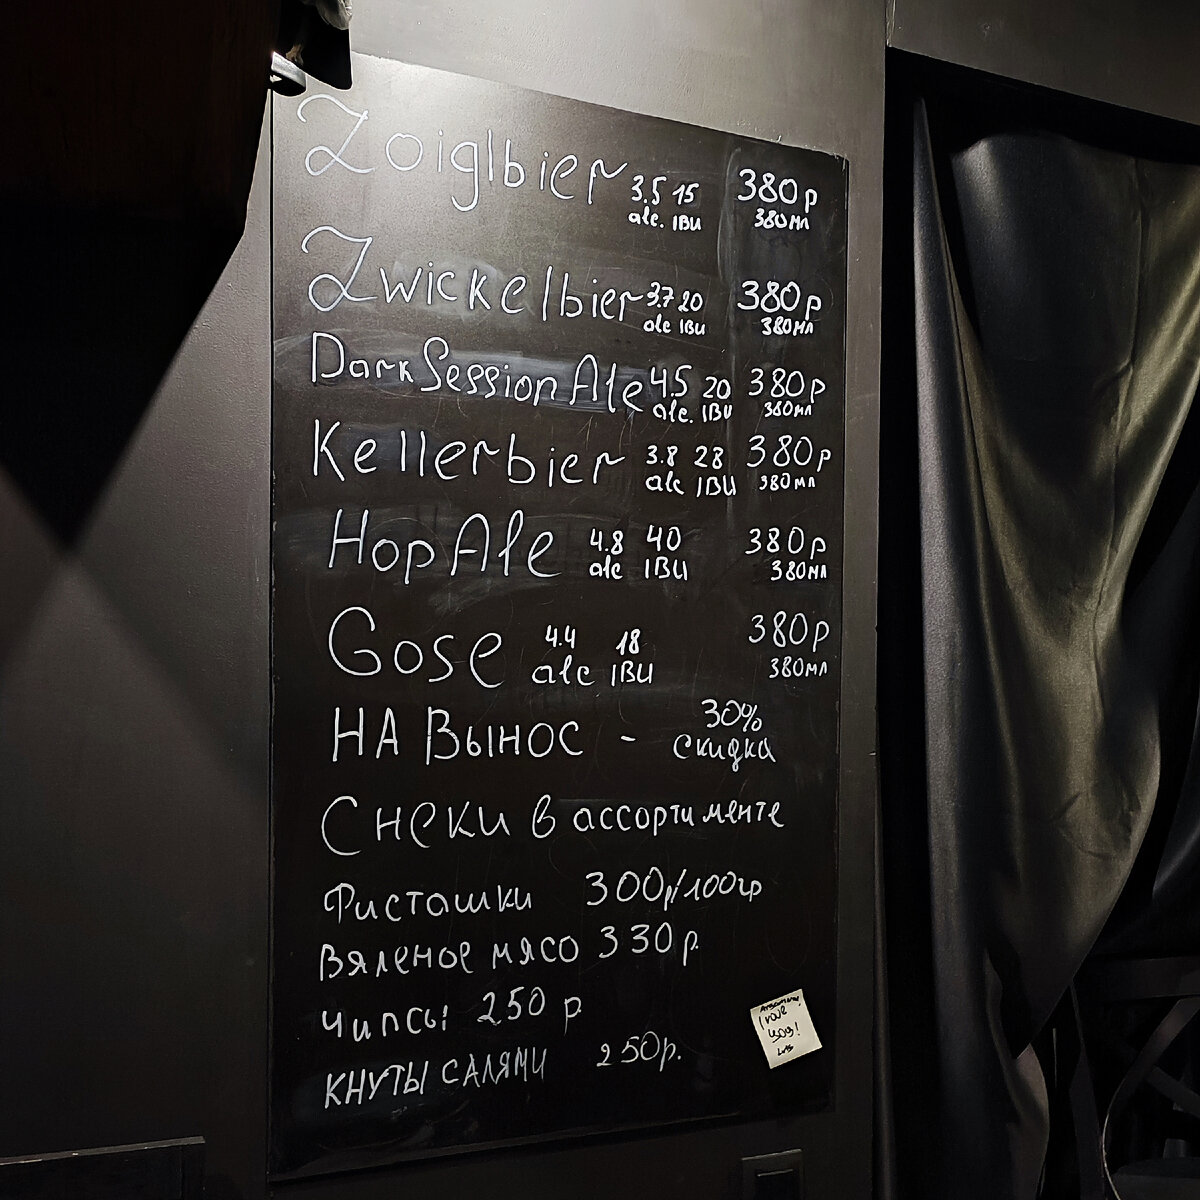 Zoiglbier 3.5 15 380р
alc. IBU 380мл
Zwickelbier 3.7 20 380р
alc IBU 380мл
Dark Session Ale 4.5 20 380р
alc. IBU 380мл
Kellerbier 3.8 28 380р
alc IBU 380мл
Hop Ale 4.8 40 380р
alc IBU 380мл
Gose 4.4 18 380р
alc IBU 380мл
НА ВЫНОС - 30%
скидка
Снеки в ассортименте
Фисташки 300р/100гр
Вяленое мясо 330р.
Чипсы 250 р
КНУТЫ САЛЯМИ 250р.
I love
you!